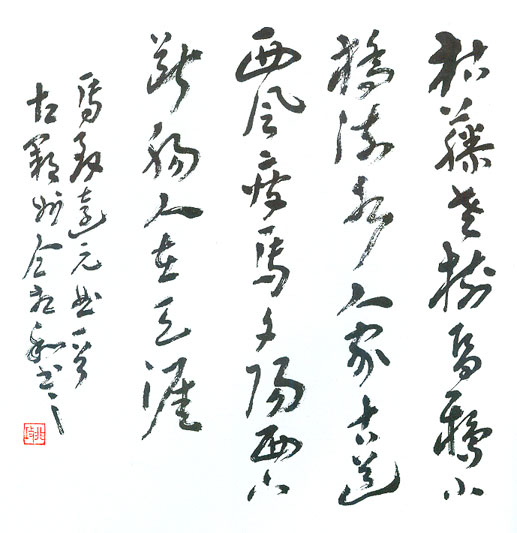 枯藤老樹昏鴉小
橋流水人家古道
西風瘦馬夕陽西下
斷腸人在天涯
馬致遠元曲一首